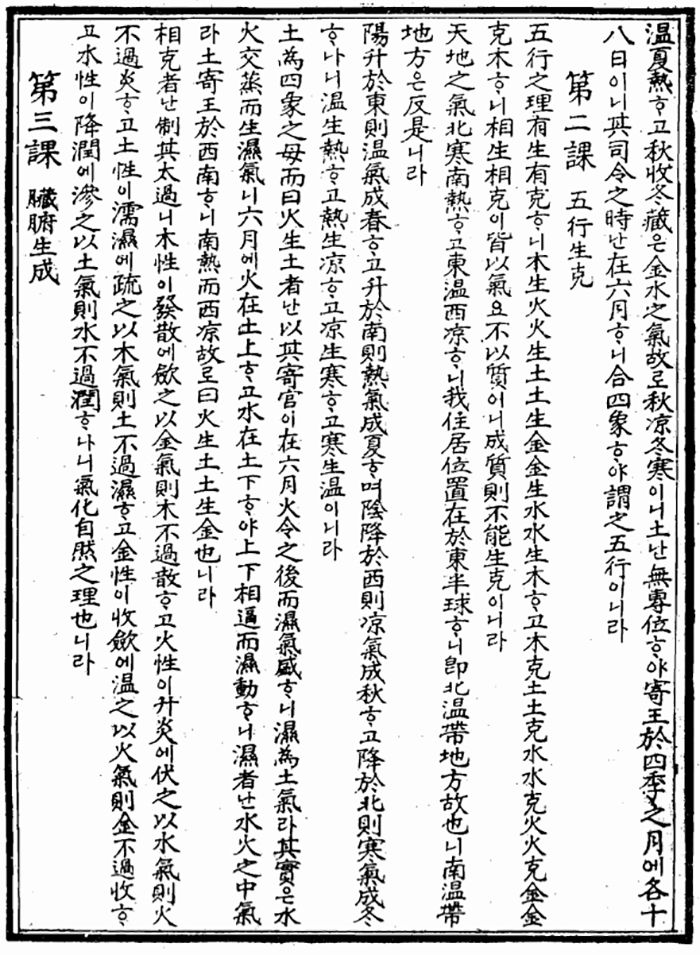 溫夏熱ᄒᆞ고秋收冬藏은金水之氣故로秋凉冬寒이니土난無專位ᄒᆞ야寄王於四季之月에各十
八日이니其司令之時난在六月ᄒᆞ니合四象ᄒᆞ야謂之五行이니라
第二課 五行生克
五行之理有生有克ᄒᆞ니木生火火生土土生金金生水水生木ᄒᆞ고木克土土克水水克火火克金金
克木ᄒᆞ니相生相克이皆以氣요不以質어니成質則不能生克이니라
天地之氣北寒南熱ᄒᆞ고東溫西凉ᄒᆞ니我住居位置在於東半球ᄒᆞ니卽北溫帶地方故也니南溫帶
地方은反是니라
陽升於東則溫氣成春ᄒᆞ고升於南則熱氣成夏ᄒᆞ며陰降於西則凉氣成秋ᄒᆞ고降於北則寒氣成冬
ᄒᆞ나니溫生熱ᄒᆞ고熱生凉ᄒᆞ고凉生寒ᄒᆞ고寒生溫이니라
土為四象之母而曰火生土者난以其寄官이在六月火令之後而濕氣盛ᄒᆞ니濕為土氣라其實은水
火交蒸而生濕氣니六月에火在土上ᄒᆞ고水在土下ᄒᆞ야上下相逼而濕動ᄒᆞ니濕者난水火之中氣
라土寄王於西南ᄒᆞ니南熱而西凉故로曰火生土土生金也니라
相克者난制其太過니木性이發散에歛之以金氣則木不過散ᄒᆞ고火性이升炎에伏之以水氣則火
不過炎ᄒᆞ고土性이濡濕에疏之以木氣則土不過濕ᄒᆞ고金性이收歛에溫之以火氣則金不過收ᄒᆞ
고水性이降潤에滲之以土氣則水不過潤ᄒᆞ나니氣化自然之理也니라
第三課 臟腑生成